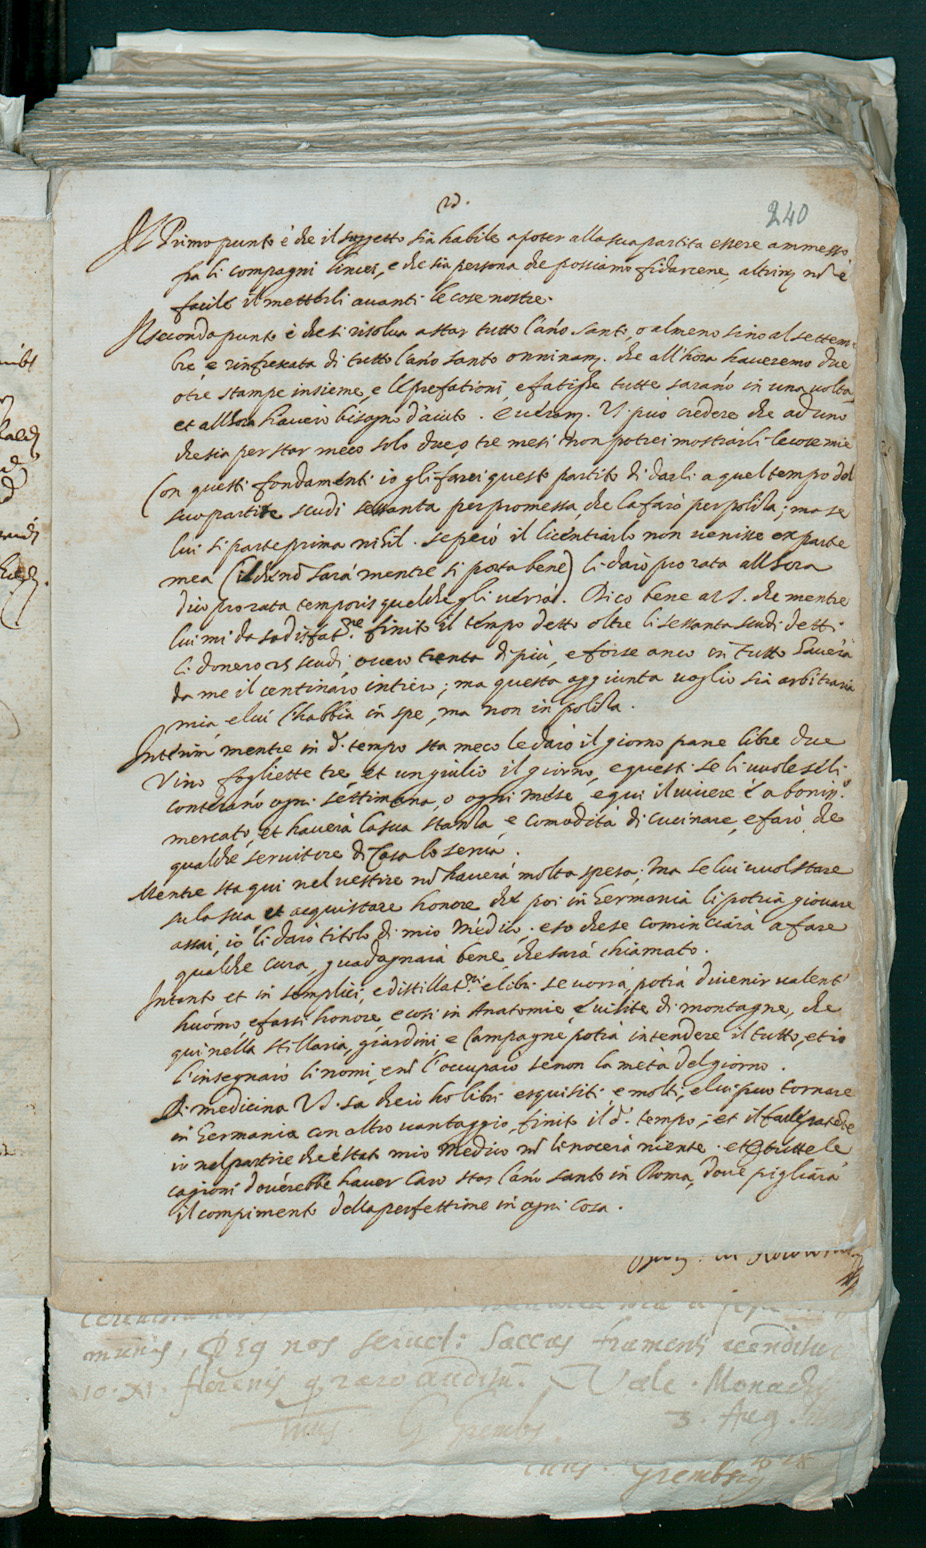 240
Il Primo punto è che il suggetto sia habile a poter alla sua partita essere ammesso
fra li compagni lincei, e che sia persona che possiamo fidarcene, altrim. nō è
facile il metterli avanti le cose nostre.
Il secondo punto è che si risolva a star tutto l'año santo, o almeno sino al settem-
bre, e rinfrescata di tutto l'año santo omninam. che all'hora haveremo due
o tre stampe insieme, e le prefationi, e fatighe tutte sarano in una volta
et allora haverò bisogno d'aiuto. e veram. V.S. può credere che ad uno
che sia per star meco solo due, o tre mesi non potrei mostrarli le cose mie
Con questi fondamenti io gli farei questo partito di darli a quel tempo del
suo partire scudi sessanta per promessa, che la farò per polisa; ma se
lui si parte prima nihil. se però il licentiarlo non venisse ex parte
mea (il che nō sarà mentre si porta bene) li darò pro rata allora
dico pro rata temporis quel che gli verrà. Dico bene a V.S. che mentre
lui mi da sodisfat.ne finito il tempo detto oltre li sessanta scudi detti
li donerò 25 scudi, overo trenta di più, e forse anco in tutto haverà
da me il centinaro intiero; ma questa aggiunta voglio sia arbitraria
mia e lui l'habbia in spe, ma non in polisa.
Interim mentre in d. tempo sta meco le darò il giorno pane libre due
vino fogliette tre, et un giulio il giorno, e questi se li vuole se li
conterano ogni settimana, o ogni mese, e qui il vivere è a boniss.o
mercato, et haverà la sua stanza, e comodità di cucinare, e farò che
qualche servitore di casa lo serva.
Mentre sta qui nel vestire nō haverà molta spesa; ma se lui vuol stare
su la sua et acquistare honore che poi in Germania li potrià giovare
assai, io li darò titolo di mio Medico, e so che se cominciarà a fare
qualche cura, guadagnarà bene, che sarà chiamato.
Intanto et in semplici, e distillat.ni e libri se vorrà, potrà divenir valent'
huomo e farsi honore e così in Anatomie, e visite di montagne, che
qui nella stillaria, giardini e campagne potrà intendere il tutto, et io
l'insegnarò li nomi, e nō l'occuparò se non la metà del giorno.
Di medicina V.S. sa che io ho libri esquisiti e molti, e lui può tornare
in Germania con altro vantaggio, finito il d. tempo; et il
io nel partire che è stato mio Medico nō li nocerà niente. et p tutte le
cagioni doverebbe haver caro star l'año santo in Roma, dove pigliarà
il compimento della perfettione in ogni cosa.
nos
Saccus frumenti
florenis raro
Vale. Monachij
3. Aug.